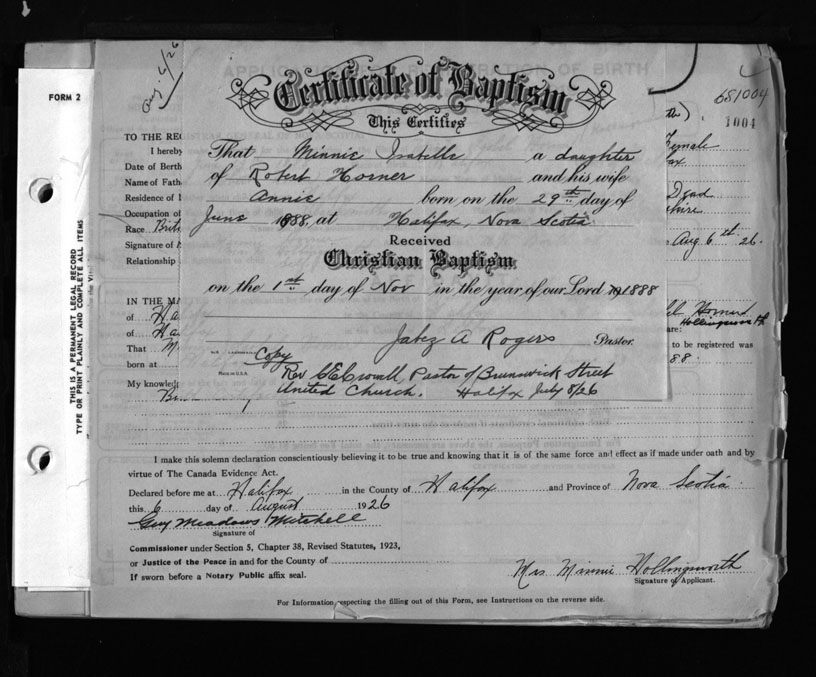 Aug. 6/26
FORM 2
THIS IS A PERMANENT LEGAL RECORD
TYPE OR PRINT PLAINLY AND COMPLETE ALL ITEMS
681004
1004
Certificate of Baptism
This Certifies
That Minnie Isabelle a daughter
of Robert Horner and his wife
Annie born on the 29th day of
June 1888, at Halifax, Nova Scotia
Received
Christian Baptism
on the 1st day of Nov in the year of our Lord 1888
Jabez A Rogers Pastor.
Copy
Rev C E Crowell, Pastor of Brunswick Street
United Church. Halifax July 8/26
TO THE REG
I hereby
Date of Birth
Name of Fath
Residence of
Occupation of
Race Brit
Signature of
Relationship
Female
Dead
Aug 6 st 26.
IN THE MA
of Ha
of Ha
That M
born at
My knowledg
Hollingsworth
are:
to be registered was
88.
I make this solemn declaration conscientiously believing it to be true and knowing that it is of the same force and effect as if made under oath and by
virtue of The Canada Evidence Act.
Declared before me at Halifax in the County of Halifax and Province of Nova Scotia
this 6 day of August 1926
Guy Meadows Mitchell
Signature of
Commissioner under Section 5, Chapter 38, Revised Statutes, 1923,
or Justice of the Peace in and for the County of
If sworn before a Notary Public affix seal.
Mrs. Minnie Hollingsworth
Signature of Applicant.
For Information respecting the filling out of this Form, see Instructions on the reverse side.